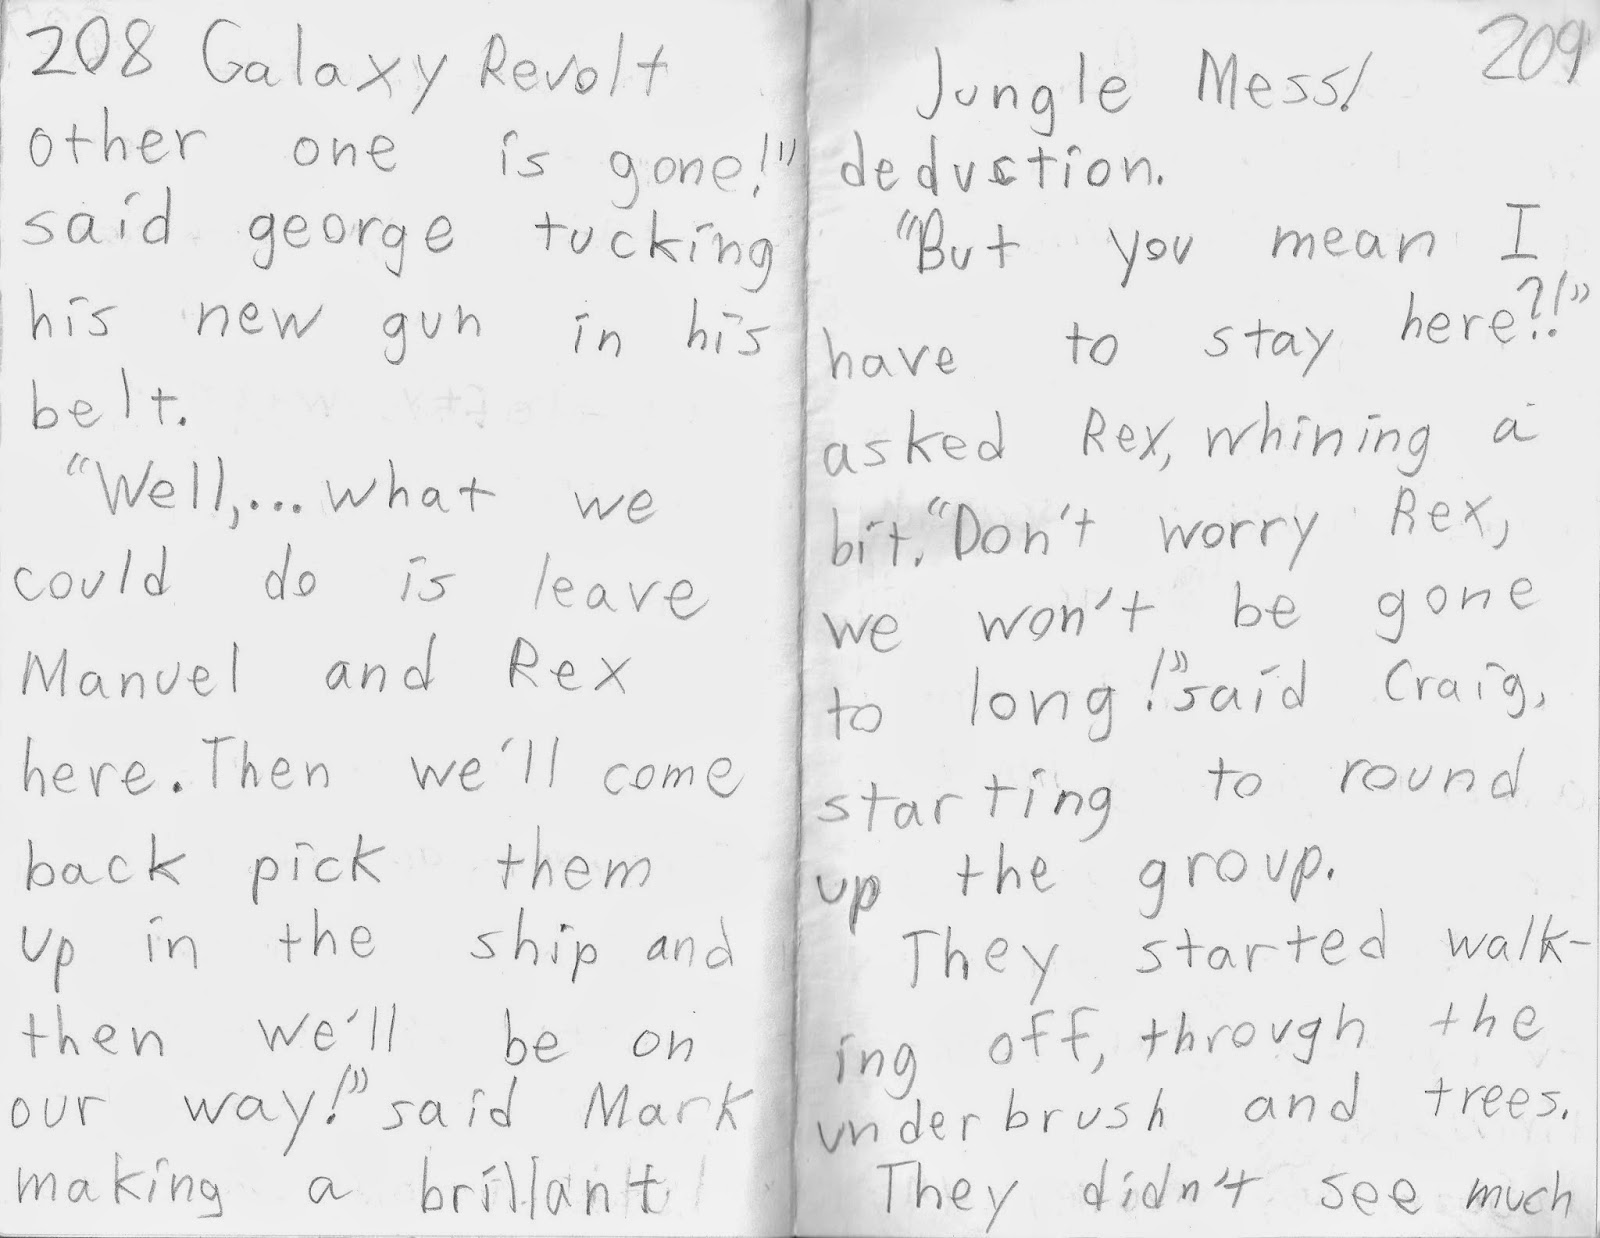 208 Galaxy Revolt
other one is gone!"
said george tucking
his new gun in his
belt.
"Well,...what we
could do is leave
Manuel and Rex
here. Then we'll come
back pick them
up in the ship and
then we'll be on
our way!" said Mark
making a brillant
209
Jungle Mess!
deduction.
"But you mean I
have to stay here?!"
asked Rex, whining a
bit. "Don't worry Rex,
we won't be gone
to long!" said Craig,
starting to round
up the group.
They started walk-
ing off, through the
underbrush and trees.
They didn't see much